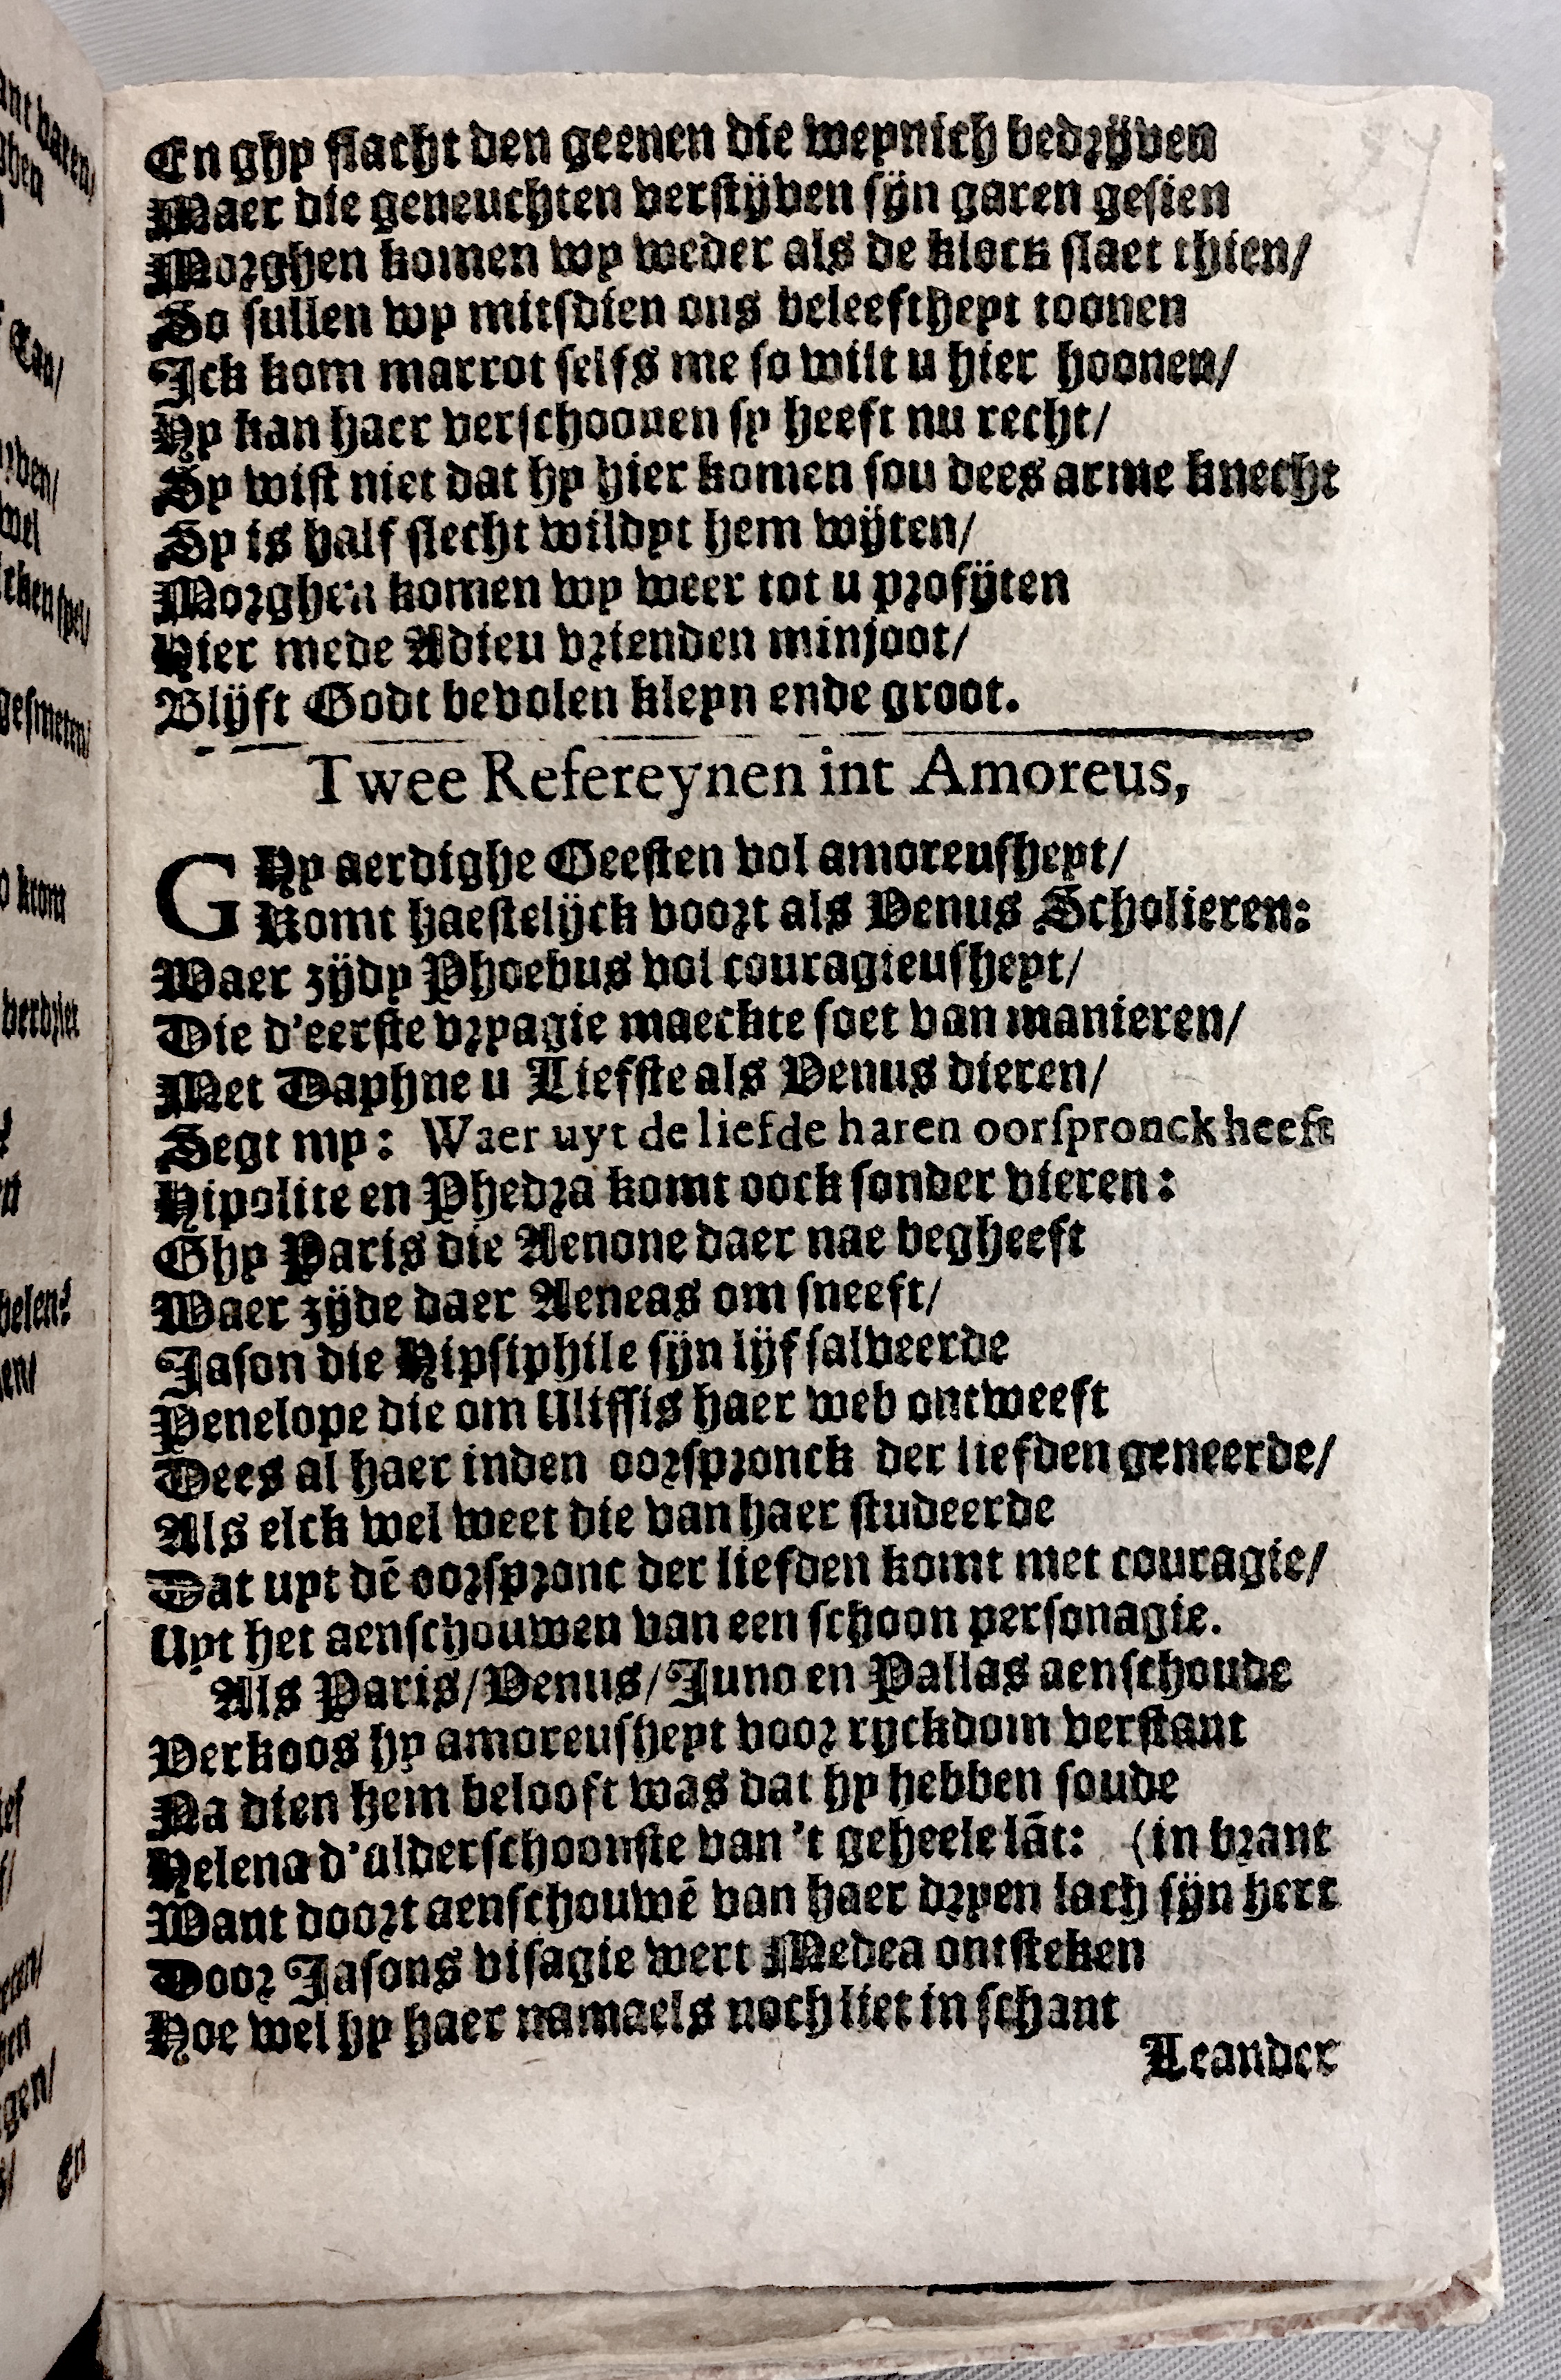 En ghy slacht den geenen die weynich bedrijven
Maer die geneuchten verstijven sijn garen gesien
Morghen komen wy weder als de klock slaet thien/
So sullen wy mitsdien ons beleeftheyt toonen
Ick kom marrot selfs me so wilt u hier hoonen/
Hy kan haer verschoonen sy heeft nu recht/
Sy wist niet dat hy hier komen sou dees arme knecht
Sy is half slecht wildyt hem wijten/
Morghen komen wy weer tot u profijten
Hier mede Adieu vrienden minjoot/
Blijft Godt bevolen kleyn ende groot.
Twee Refereynen int Amoreus,
GHy aerdighe Geesten vol amoreusheyt/
Komt haestelijck voort als Venus Scholieren:
Waer zijdy Phoebus vol couragieusheyt/
Die d'eerste vryagie maeckte soet van manieren/
Met Daphne u Liefste als Venus dieren/
Segt my: Waer uyt de liefde haren oorspronck heeft
Hipolite en Phedra komt oock sonder vieren:
Ghy Paris die Aenone daer nae begheeft
Waer zijde daer Aeneas om sneeft/
Jason die Hipsiphile sijn lijf salveerde
Penelope die om Ulissis haer web ontweeft
Dees al haer inden oorspronck der liefden geneerde/
Als elck wel weet die van haer studeerde
Dat uyt dē oorspronc der liefden komt met couragie/
Uyt het aenschouwen van een schoon personagie.
Als Paris/Venus/Juno en Pallas aenschoude
Verkoos hy amoreusheyt voor ryckdom verstant
Na dien hem belooft was dat hy hebben soude
Helena d'alderschoonste van 't geheele lāt: (in brant
Want doort aenschouwē van haer dryen lach sijn hert
Door Jasons visagie wert Medea ontsteken
Hoe wel hy haer namaels noch liet in schant
Leander